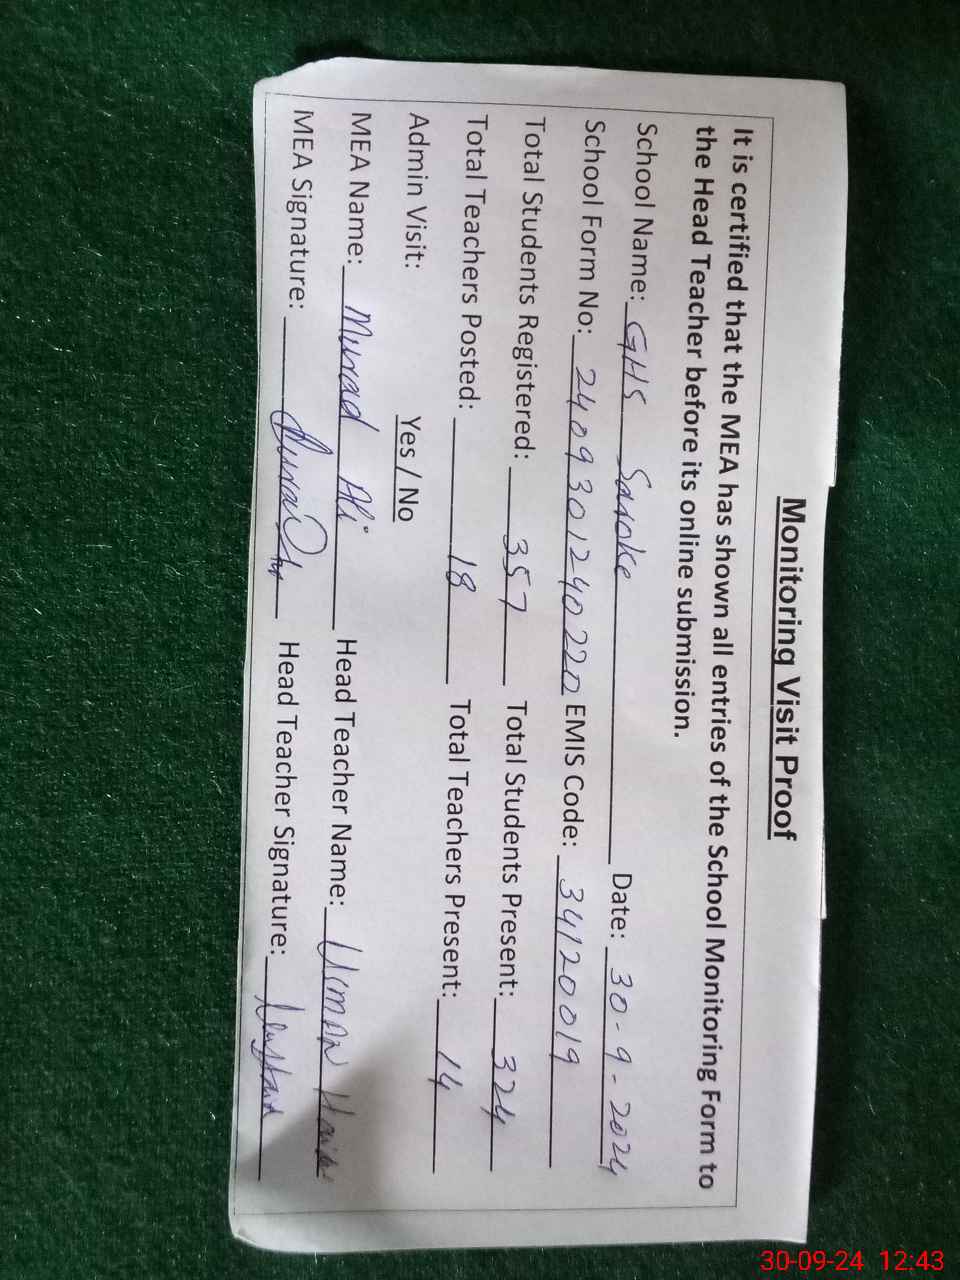 Monitoring Visit Proof
It is certified that the MEA has shown all entries of the School Monitoring Form to
the Head Teacher before its online submission.
School Name: GHS Sanoke Date: 30-9-2024
School Form No: 2409301240220 EMIS Code: 34120019
Total Students Registered: 357 Total Students Present: 324
Total Teachers Posted: 18 Total Teachers Present: 14
Admin Visit: Yes / No
MEA Name: Murad Ali Head Teacher Name: Usman
MEA Signature: Head Teacher Signature:
30-09-24 12:43